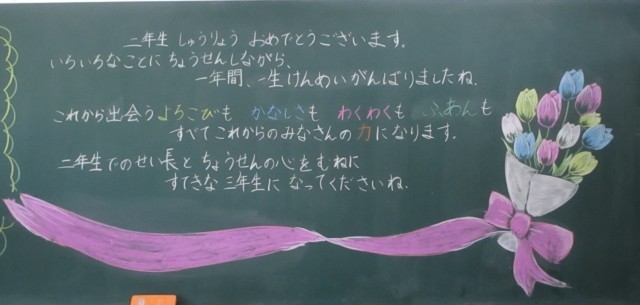 二年生 しゅうりょう おめでとうございます。
いろいろなことに ちょうせんしながら、
一年間、一生けんめい がんばりましたね。
これから出会う よろこびも かなしさも わくわくも ふあんも
すべて これからの みなさんの 力に なります。
二年生での せい長と ちょうせんの心を むねに
すてきな 三年生に なってくださいね。